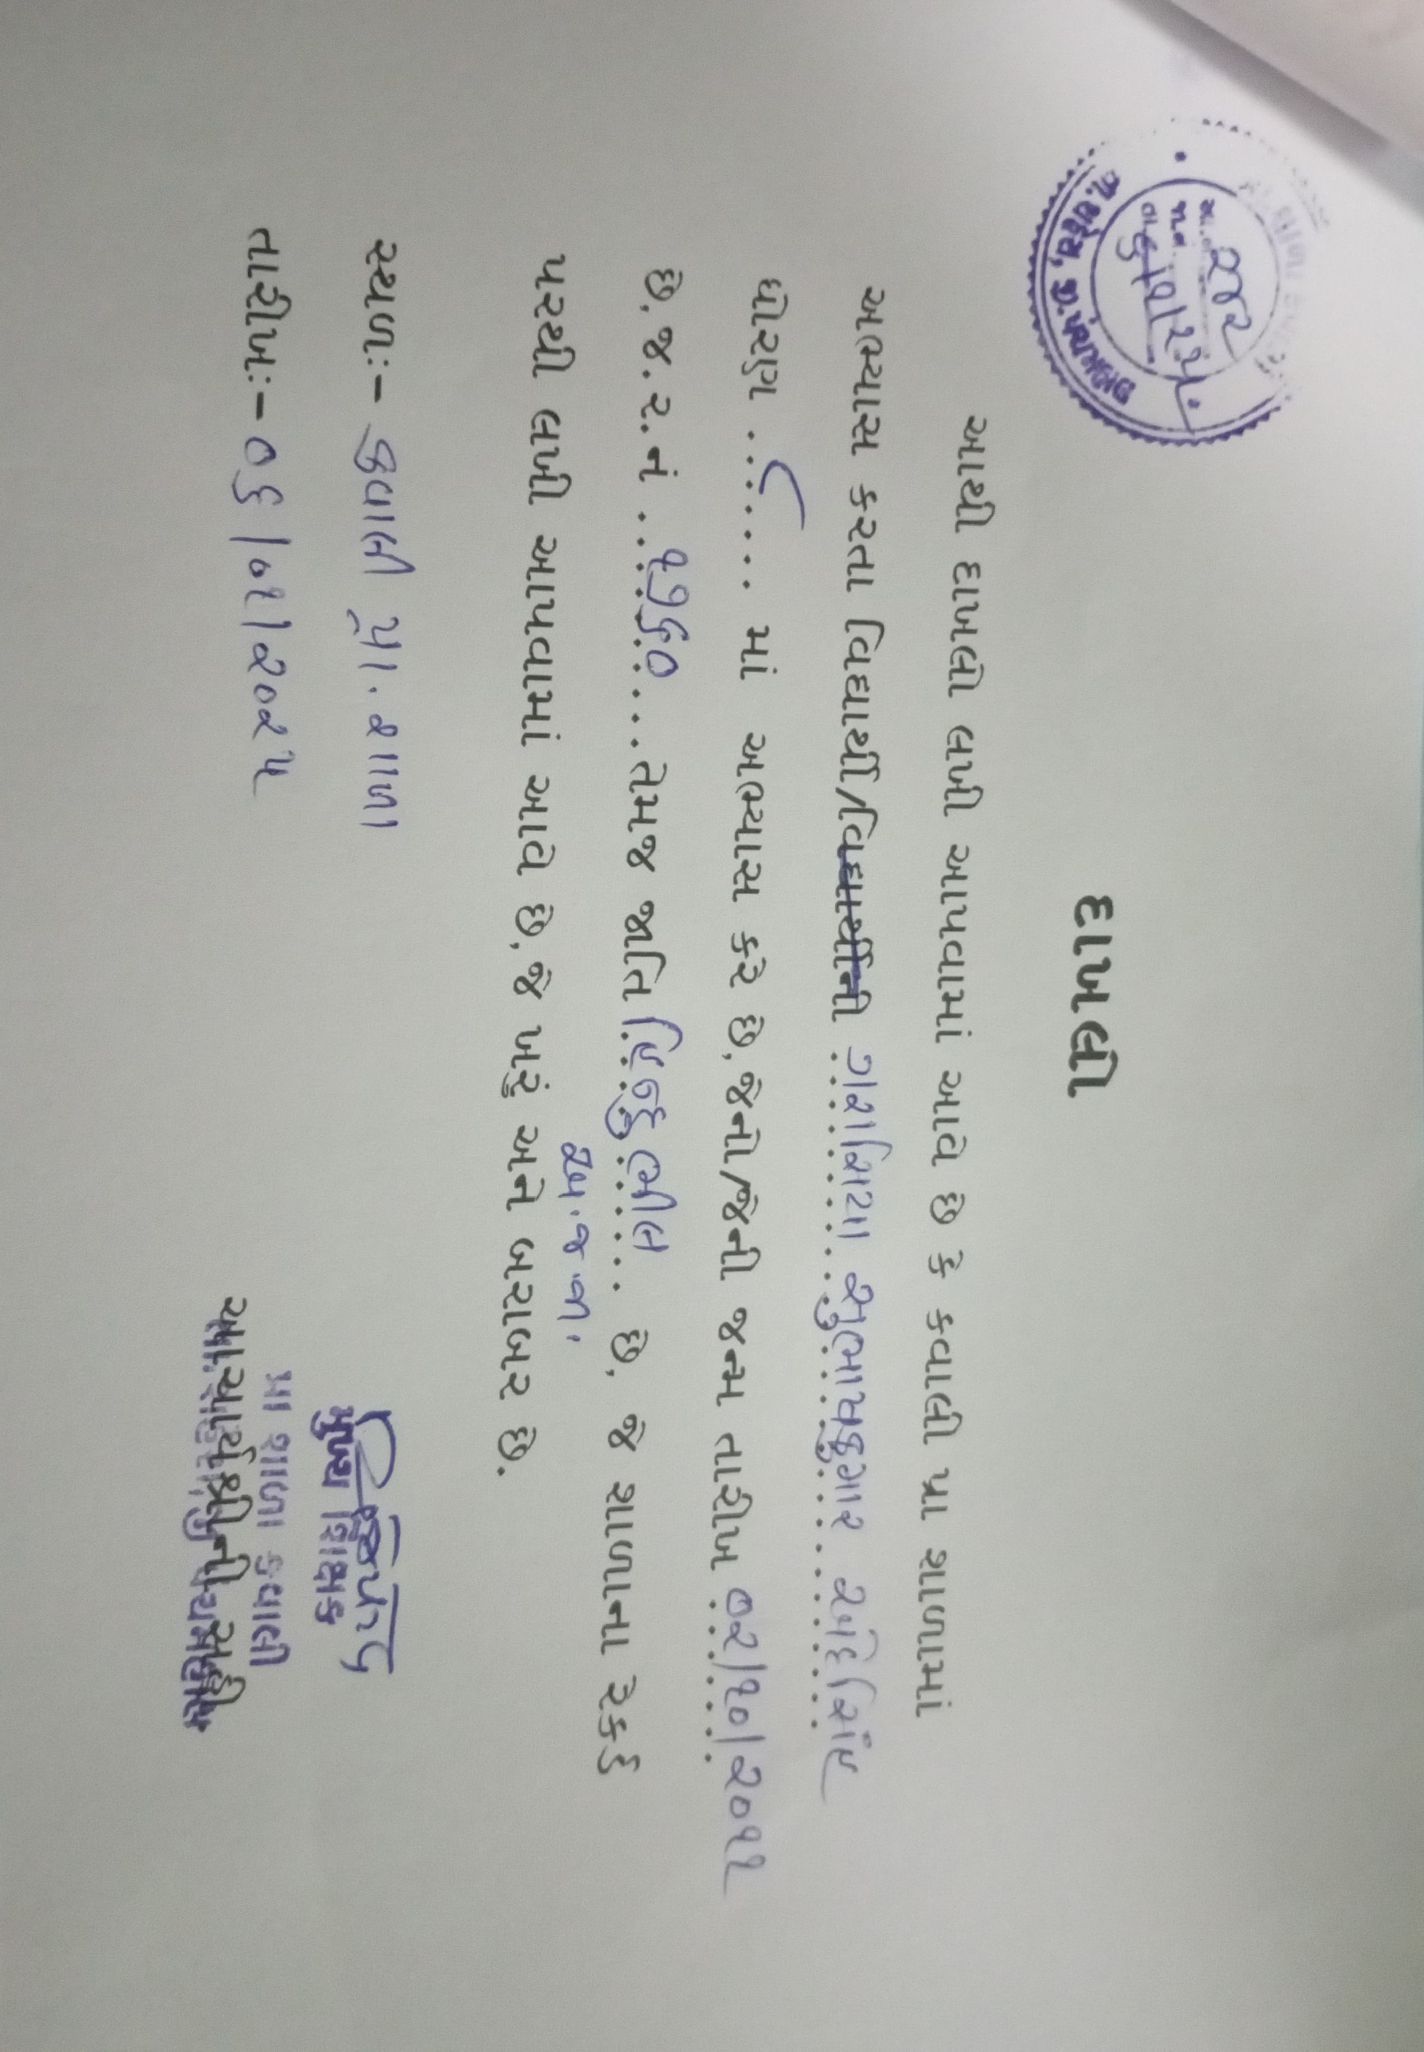 દાખલો
આથી દાખલો લખી આપવામાં આવે છે કે ક્વાલી પ્રા શાળામાં
અભ્યાસ કરતા વિદ્યાર્થી/વિદ્યાર્થીની ગરાસિયા સુભાષકુમાર
ધોરણ ......૮..... માં અભ્યાસ કરે છે,જેનો/જેની જન્મ તારીખ ૦૨/૧૦/૨૦૧૧
છે,જ.ર.નં ..૧૭૬૦...તેમજ જાતિ હિન્દુ ભીલ ... છે, જે શાળાના રેકર્ડ
અ.જ.જા.
પરથી લખી આપવામાં આવે છે,જે ખરૂં અને બરાબર છે.
સ્થળઃ- ક્વાલી પ્રા. શાળા
તારીખઃ- ૦૬/૦૧/૨૦૨૫
મુખ્ય શિક્ષક
પ્રા શાળા ક્વાલી
આચાર્યશ્રીની સહી